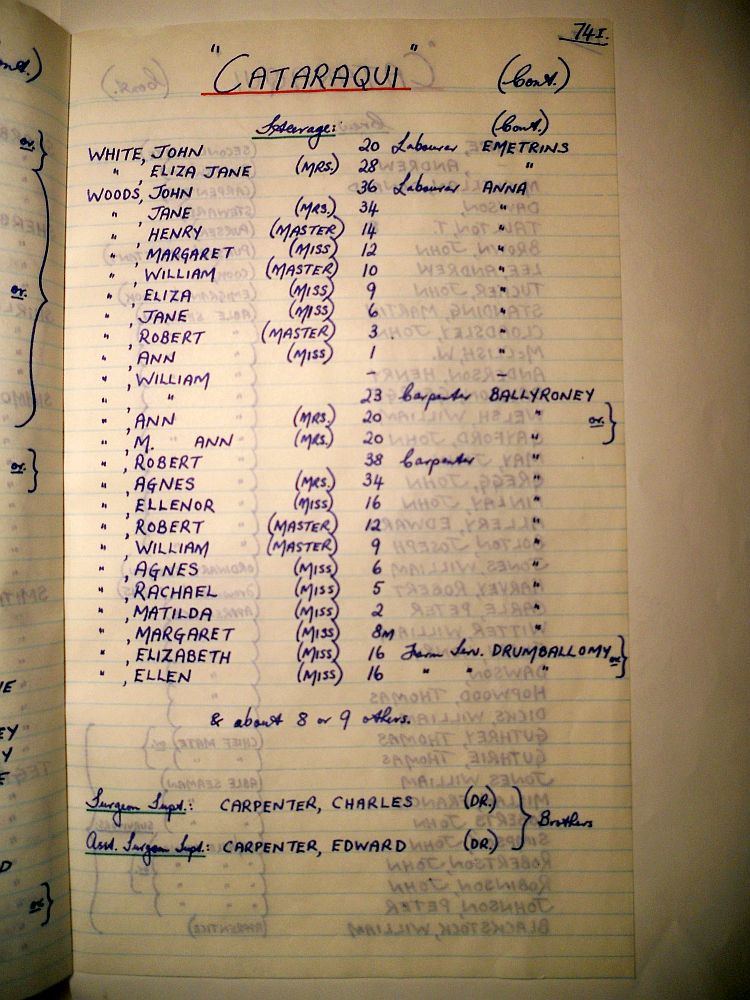 74I.
"CATARAQUI" (Cont.)
Steerage: (Cont.)
WHITE, JOHN 20 Labourer EMETRINS
" , ELIZA JANE (MRS.) 28 "
WOODS, JOHN 36 Labourer ANNA
" , JANE (MRS.) 34 "
" , HENRY (MASTER) 14 "
" , MARGARET (MISS) 12 "
" , WILLIAM (MASTER) 10 "
" , ELIZA (MISS) 9 "
" , JANE (MISS) 6 "
" , ROBERT (MASTER) 3 "
" , ANN (MISS) 1 "
" , WILLIAM - -
" , " 23 Carpenter BALLYRONEY
" , ANN (MRS.) 20 " or.
" , M. " ANN (MRS.) 20 "
" , ROBERT 38 Carpenter "
" , AGNES (MRS.) 34 "
" , ELLENOR (MISS) 16 "
" , ROBERT (MASTER) 12 "
" , WILLIAM (MASTER) 9 "
" , AGNES (MISS) 6 "
" , RACHAEL (MISS) 5 "
" , MATILDA (MISS) 2 "
" , MARGARET (MISS) 8M "
" , ELIZABETH (MISS) 16 Farm Serv. DRUMBALLOMY or.
" , ELLEN (MISS) 16 " " "
& about 8 or 9 others.
Surgeon Supt.: CARPENTER, CHARLES (DR.)
Brothers
Asst. Surgeon Supt.: CARPENTER, EDWARD (DR.)